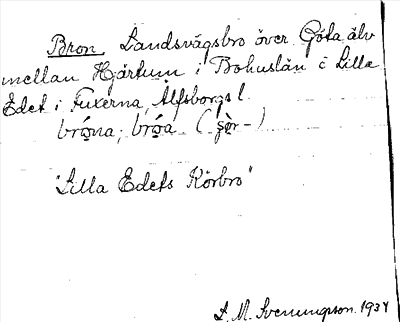 Bron Landsvägsbro över Göta älv
mellan Hjärtum i Bohuslän o Lilla
Edet i Fuxerna, Älfsborgs l.
"Lilla Edets Körbro"
S. M. Svenungson 1934